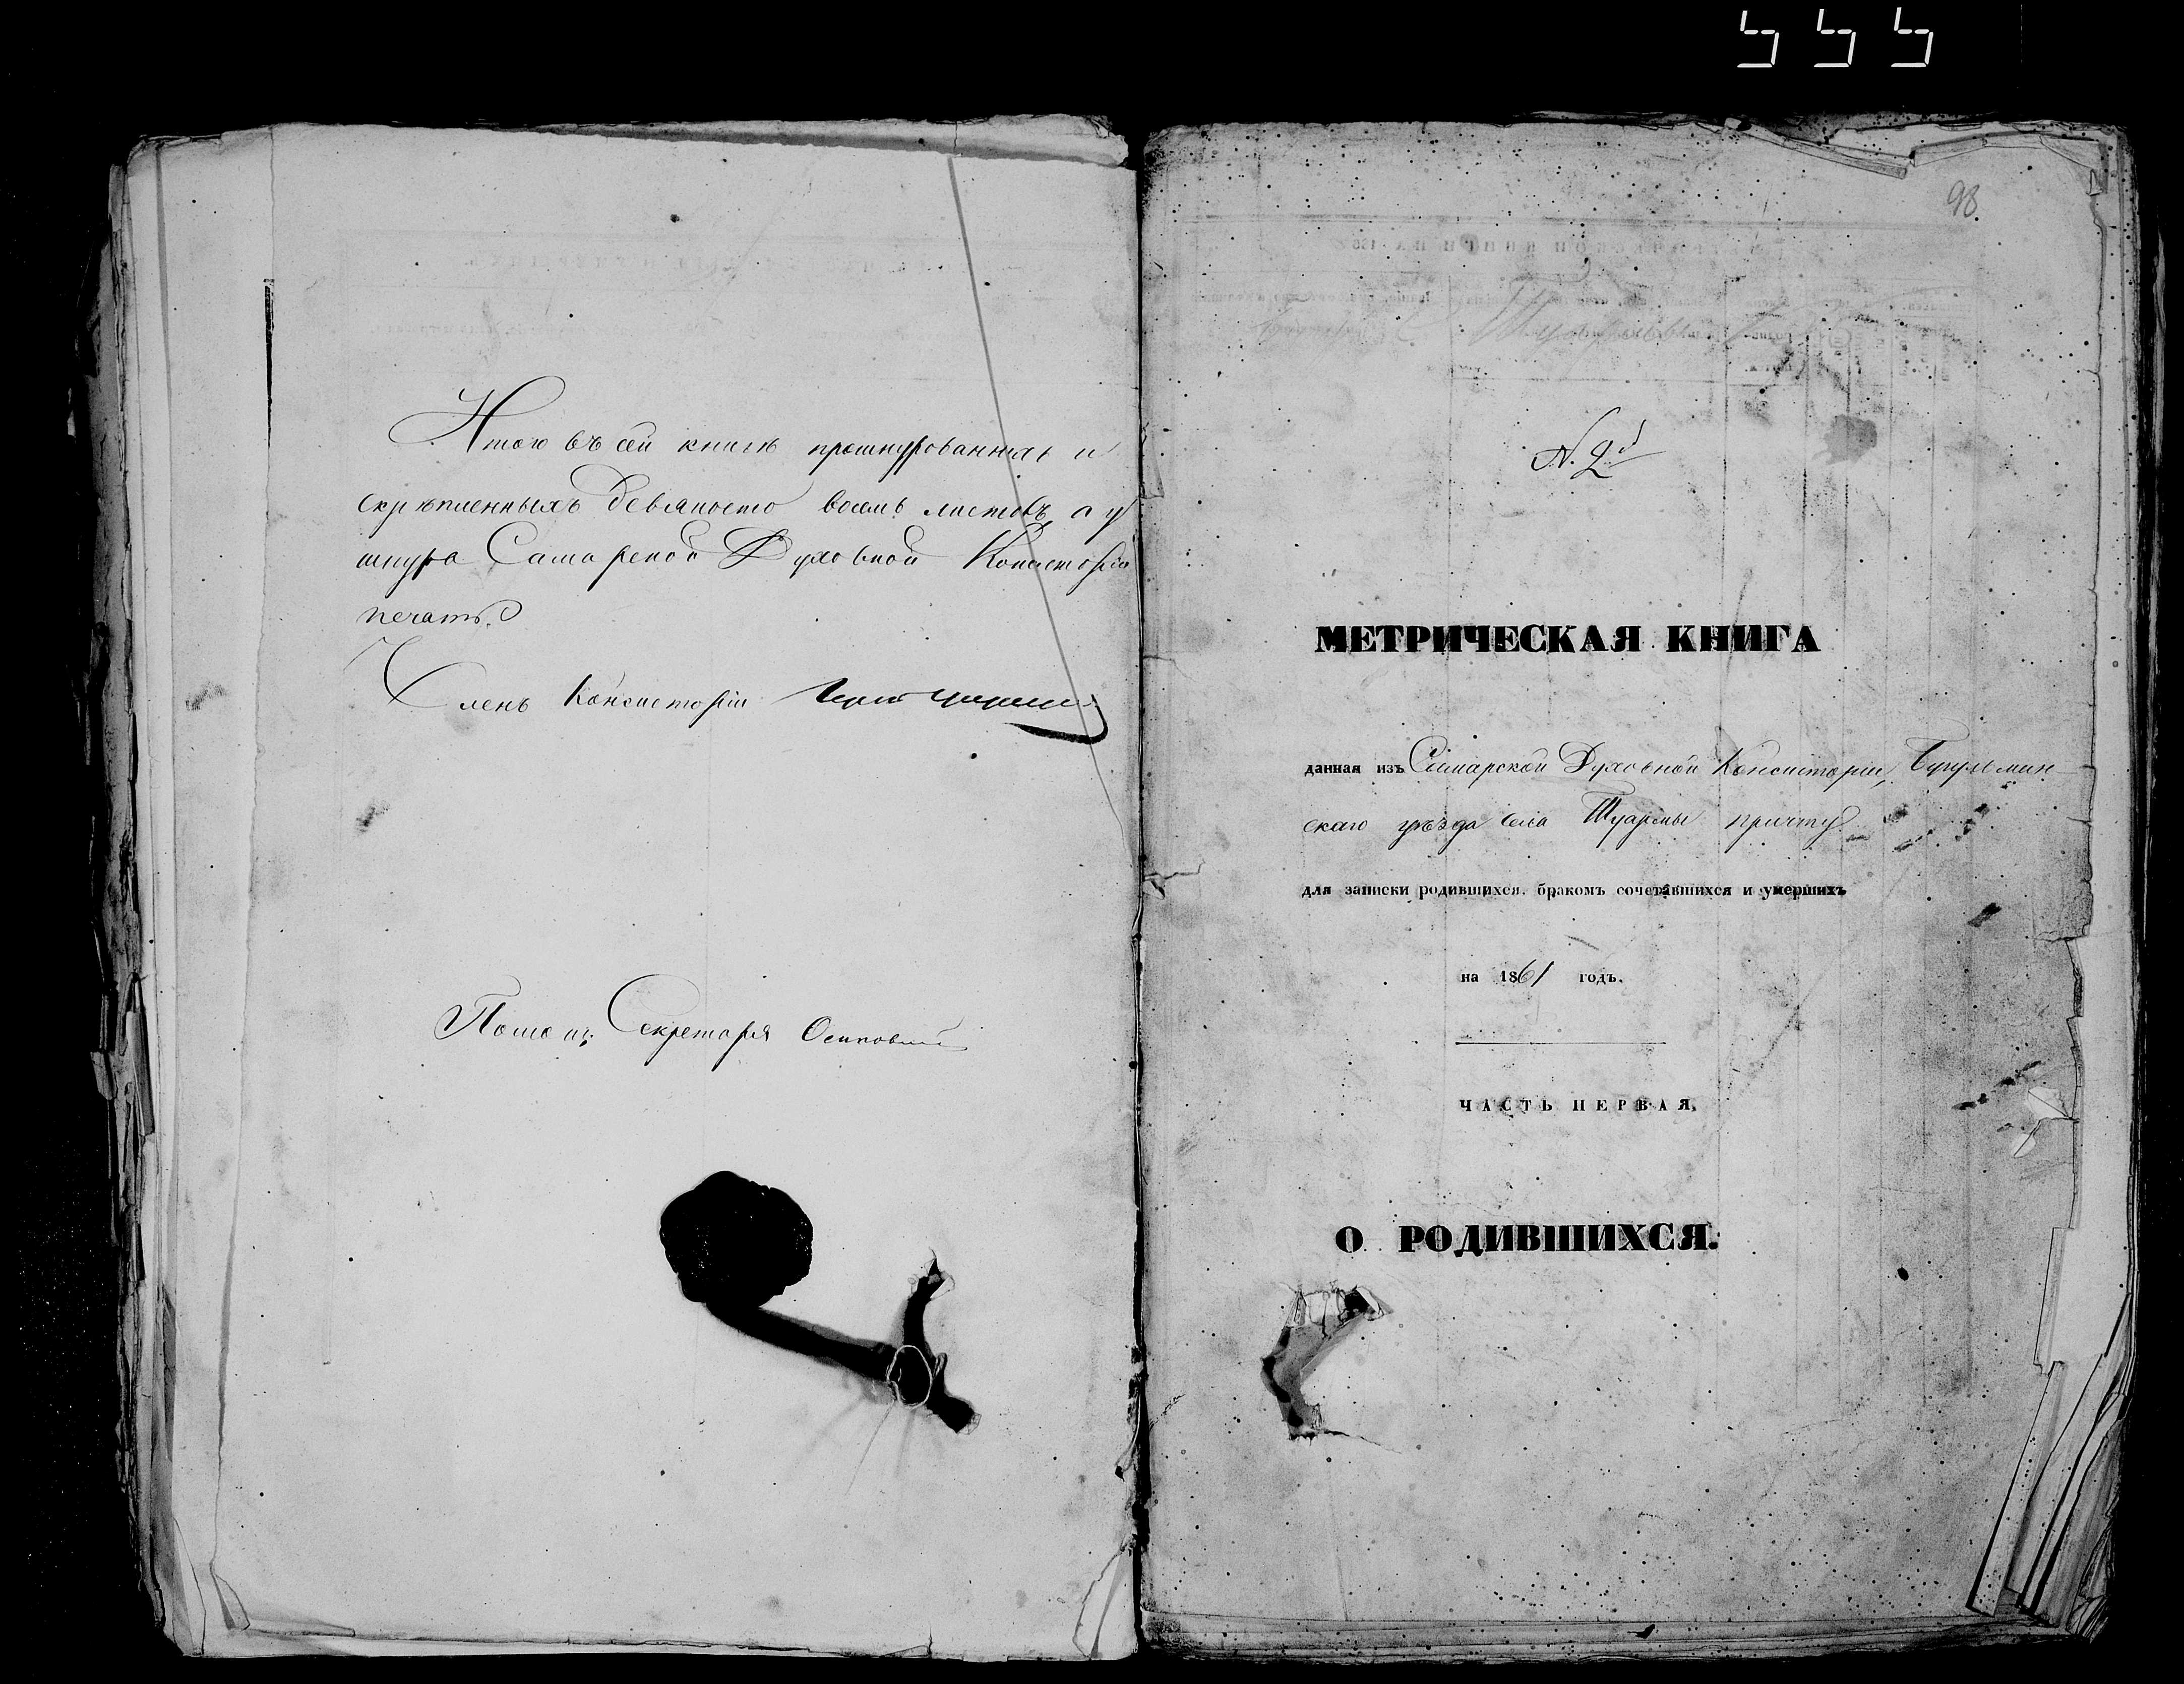 555
Итого въ сей книгѣ прошнурованныхъ и
скрѣпленныхъ девяносто восемь листовъ, а у
шнура Самарской Духовной Консисторіи
печать.
Членъ Консисторіи
Помощ: Секретаря Осиповскій
98.
N. 2й
МЕТРИЧЕСКАЯ КНИГА
данная изъ Самарской Духовной Консисторіи, Бугульмин-
скаго уѣзда села Туармы причту
для записки родившихся, бракомъ сочетавшихся и умершихъ
на 1861 годъ.
ЧАСТЬ ПЕРВАЯ.
О РОДИВШИХСЯ.